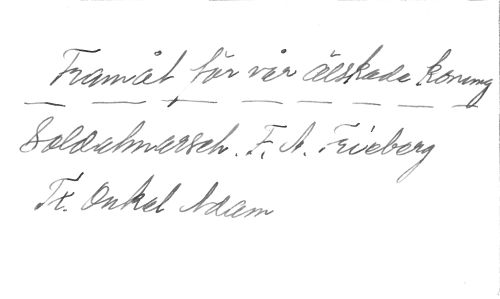 Framåt för vår älskade konung
Soldatmarsch. F. A. Frieberg
Tr. Onkel Adam